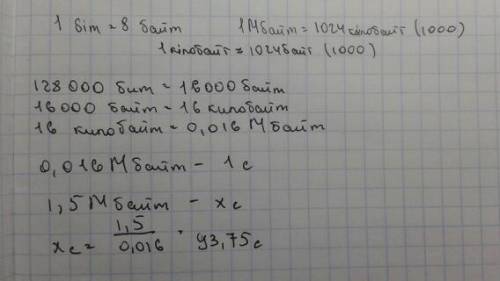 1 біт = 8 байт 1 Мбайт = 1024 кілобайт (1000)
1 кілобайт = 1024 байт (1000)
128 000 бит = 16 000 байт
16 000 байт = 16 килобайт
16 килобайт = 0,016 Мбайт
0,016 Мбайт - 1 с
1,5 Мбайт - x с
x с = 1,5 / 0,016 = 93,75 с